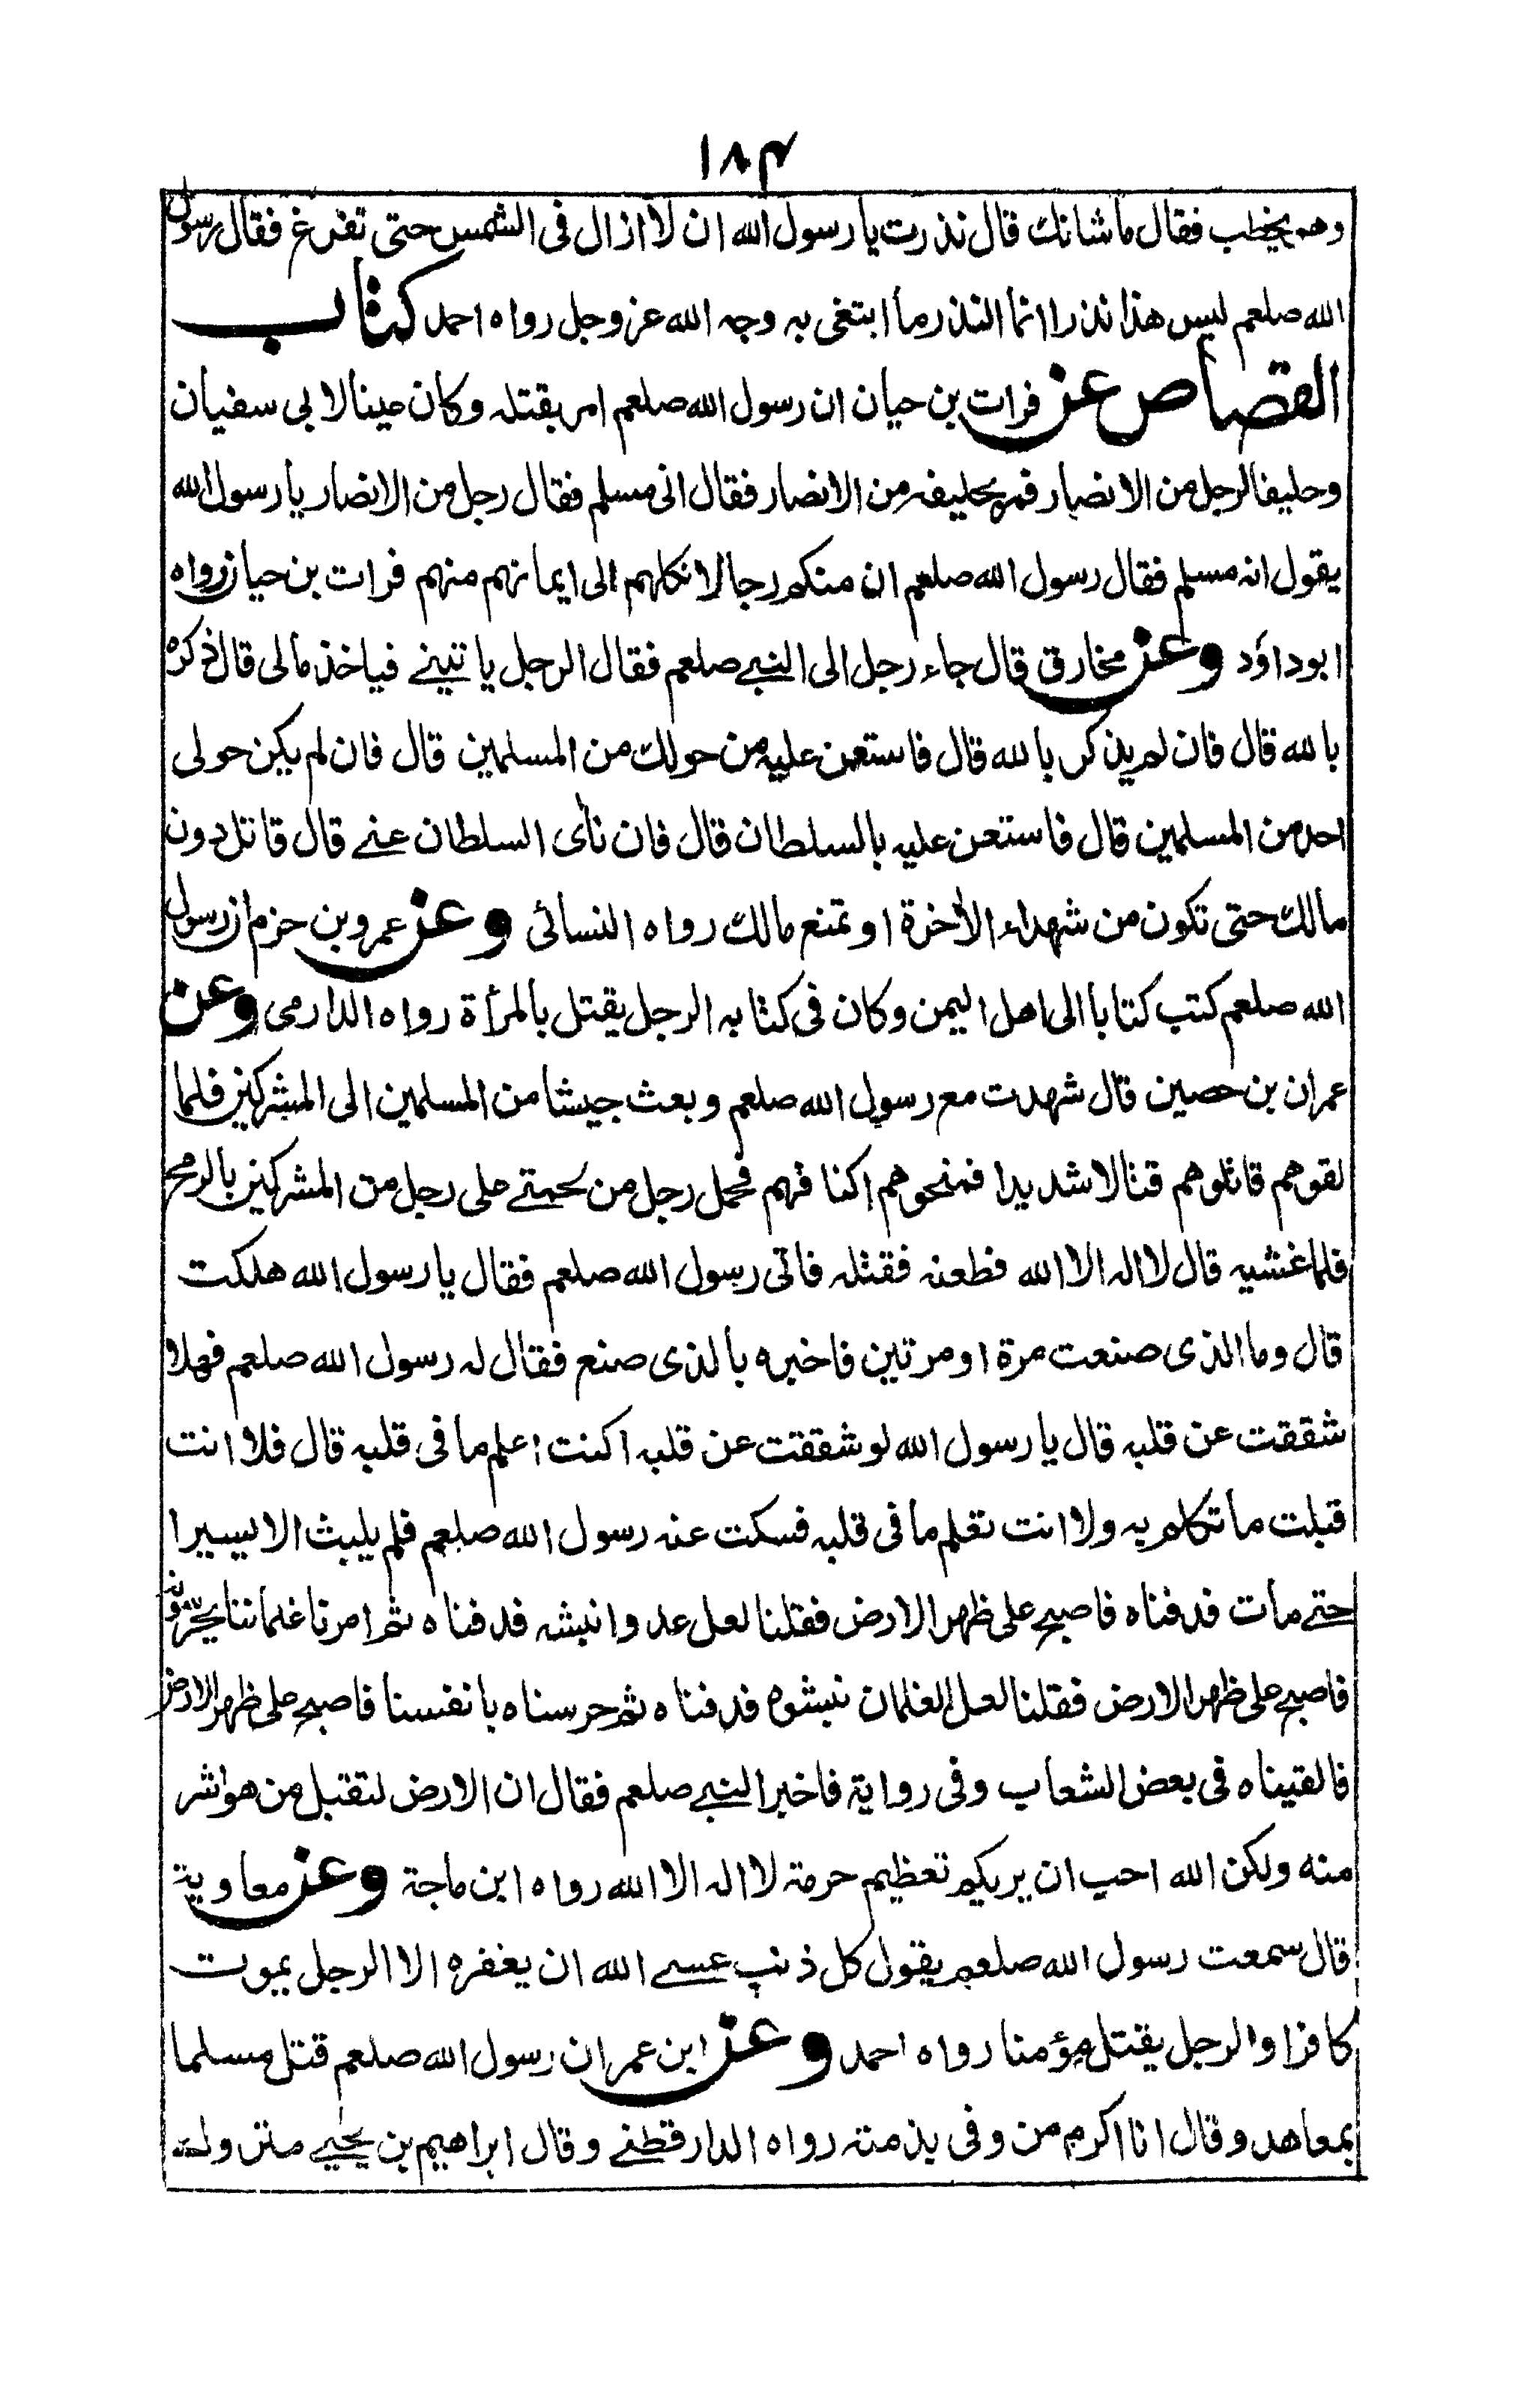 ١٨٤
وهو يخطب فقال ما شانك قال نذرت يا رسول الله ان لا ازال فى الشمس حتى تفرغ فقال رسول
الله صلعم ليس هذا نذرا انما النذر ما ابتغى به وجه الله عز وجل رواه احمد كتاب
القصاص عن فرات بن حيان ان رسول الله صلعم امر بقتله وكان عينا لابى سفيان
وحليفا لرجل من الانصار فمر بحليفه من الانصار فقال انى مسلم فقال رجل من الانصار يا رسول الله
يقول انه مسلم فقال رسول الله صلعم ان منكم رجالا نكلهم الى ايمانهم منهم فرات بن حيان رواه
ابو داؤد وعن مخارق قال جاء رجل الى النبي صلعم فقال الرجل ياتيني فياخذ مالى قال ذكره
بالله قال فان لم يذكر بالله قال فاستعن عليه من حولك من المسلمين قال فان لم يكن حولى
احد من المسلمين قال فاستعن عليه بالسلطان قال فان نأى السلطان عني قال قاتل دون
مالك حتى تكون من شهداء الأخرة او تمنع مالك رواه النسائى وعن عمرو بن حزم ان رسول
الله صلعم كتب كتابا الى اهل اليمن وكان فى كتابه الرجل يقتل بالمرأة رواه الدارمى وعن
عمران بن حصين قال شهدت مع رسول الله صلعم وبعث جيشا من المسلمين الى المشركين فلما
لقوهم قاتلوهم قتالا شديدا فمنحوهم اكتافهم فحمل رجل من لحمتي على رجل من المشركين بالرمح
فلما غشيه قال لا اله الا الله فطعنه فقتله فاتى رسول الله صلعم فقال يا رسول الله هلكت
قال وما الذى صنعت مرة او مرتين فاخبره بالذى صنع فقال له رسول الله صلعم فهلا
شققت عن قلبه قال يا رسول الله لو شققت عن قلبه اكنت اعلم ما فى قلبه قال فلا انت
قبلت ما تكلم به ولا انت تعلم ما فى قلبه فسكت عنه رسول الله صلعم فلم يلبث الا يسيرا
حتى مات فدفناه فاصبح على ظهر الارض فقلنا لعل عدوا نبشه فدفناه ثم امرنا غلماننا يحرسونه
فاصبح على ظهر الارض فقلنا لعل الغلمان نبشوه فدفناه ثم حرسناه بانفسنا فاصبح على ظهر الارض
فالقيناه فى بعض الشعاب وفى رواية فاخبر النبي صلعم فقال ان الارض لتقبل من هو اشر
منه ولكن الله احب ان يريكم تعظيم حرمة لا اله الا الله رواه ابن ماجة وعن معاوية
قال سمعت رسول الله صلعم يقول كل ذنب عسى الله ان يغفره الا الرجل يموت
كافرا والرجل يقتل مؤمنا رواه احمد وعن ابن عمر ان رسول الله صلعم قتل مسلما
بمعاهد وقال انا اكرم من وفى بذمته رواه الدارقطني وقال ابراهيم بن يحيي متروك